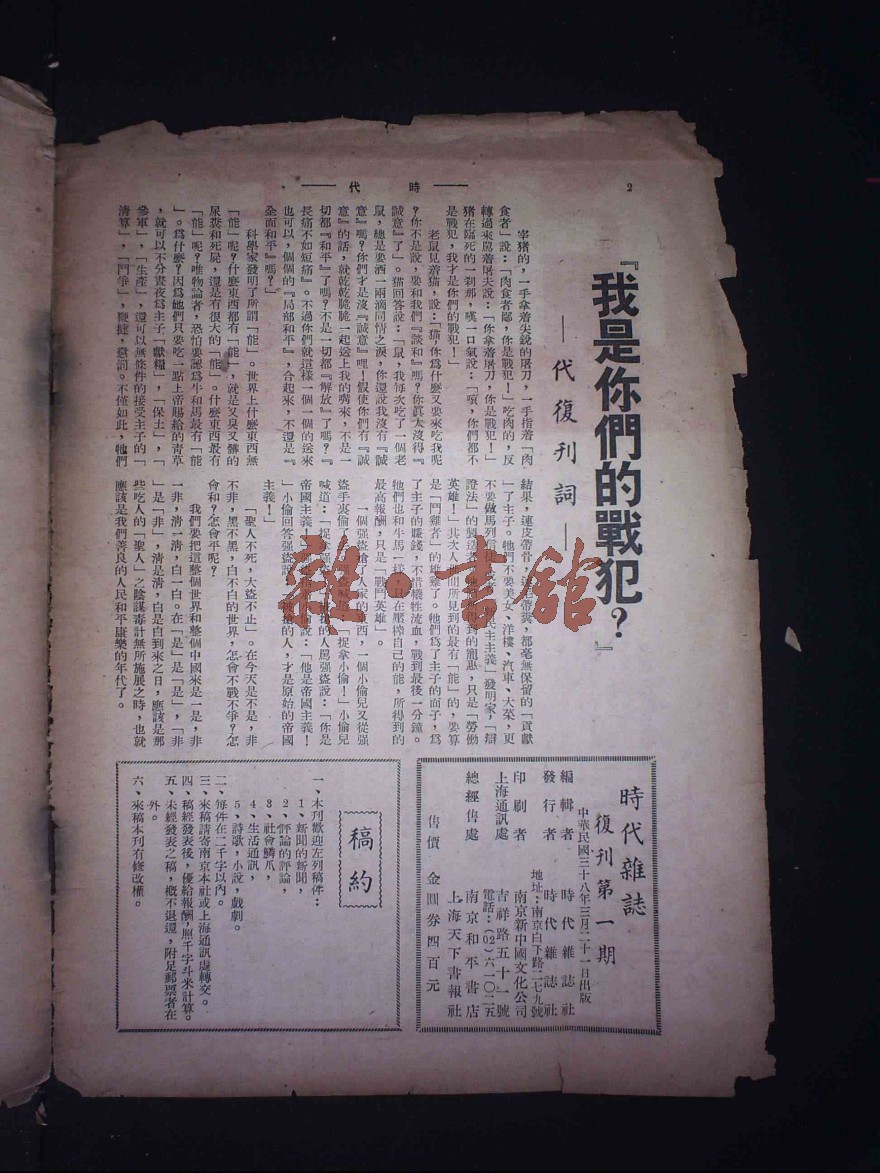 2
時代
『我是你們的戰犯？』
—代復刊詞—
宰猪的，一手拿着尖銳的屠刀，一手指着「肉
食者」說：「肉食者鄙，你是戰犯！」吃肉的，反
轉過來罵着屠夫說：「你拿着屠刀，你是戰犯！」
猪在臨死的一剎那，嘆一口氣說：「唉，你們都不
是戰犯，我才是你們的戰犯！」
老鼠見着猫，說：「猫，你爲什麼又要來吃我呢
？你不是說，要和我們『談和』嗎？你眞太沒得『
誠意』了」。猫回答說：「鼠，我每次吃了一個老
鼠，總是要洒一兩滴同情之淚，你還說我沒有『誠
意』嗎？你們才是沒『誠意』哩！假使你們有『誠
意』的話，就乾乾脆脆一起送上我的嘴來，不是一
切都『和平』了嗎？不是一切都『解放』了嗎？『
長痛不如短痛』。不過你們就這樣一個一個的送來
也可以，個個的『局部和平』，合起來，不還是『
全面和平』嗎？」
科學家發明了所謂「能」。世界上什麼東西無
「能」呢？什麼東西都有「能」，就是又臭又髒的
尿糞和死屍，還是有很大的「能」。什麼東西最有
「能」呢？唯物論者，恐怕要認爲牛和馬最有「能
」。爲什麼？因爲他們只要吃一點上帝賜給的青草
，就可以不分晝夜爲主子「獻糧」，「保土」，「
參軍」，「生產」，還可以無條件的接受主子的「
淸算」，「鬥爭」，鞭撻，懲罰。不僅如此，牠們
結果，連皮帶骨，連尿帶糞，都毫無保留的「貢獻
」了主子。牠們不要美女、洋樓、汽車、大菜，更
不要做馬列信徒，民主主義」發明家，「辯
證法」的製造者。牠們所得到的寵惠，只是「勞働
英雄！」其次人間所見到的最有「能」的，要算
是「鬥雞者」的雄雞了。牠們爲了主子的面子，爲
了主子的賺錢，不惜犧牲流血，戰到最後一分鐘。
牠們也和牛馬一樣，只在壓榨自己的能，所得到的
最高報酬，只是「戰鬥英雄」。
一個强盜搶了人家的東西，一個小偷兒又從强
盜手裏偷了。强盜喊道：「捉拿小偷！」小偷兒
喊道：「捉拿强盜！」被搶的人罵强盜說：「你是
帝國主義！」强盜對小偷說：「他是帝國主義！
」小偷回答强盜說：「被搶的人，才是原始的帝國
主義！」
「聖人不死，大盜不止」。在今天是不是，非
不非，黑不黑，白不白的世界，怎會不戰不爭？怎
會和？怎會平呢？
我們要把這整個世界和整個中國來是一是，非
一非，淸一淸，白一白。在「是」是「是」，「非
」是「非」，淸是淸，白是白到來之日，應該是那
些吃人的「聖人」之陰謀毒計無所施展之時，也就
應該是我們善良的人民和平康樂的年代了。
雜·書館
時代雜誌
復刊第一期
中華民國三十八年三月二十一日出版
編輯者　時代雜誌社
發行者　時代雜誌社
地址：南京白下路二七九號
印刷者　南京新中國文化公司
上海通訊處　吉祥路五十一號
電話：(02)六一〇二五
總經售處　南京和平書店
上海天下書報社
售價　金圓券四百元
稿約
一、本刊歡迎左列稿件：
1、新聞的新聞，
2、評論的評論，
3、社會鱗爪，
4、生活通訊，
5、詩歌，小說，戲劇。
二、每件在二千字以內。
三、來稿請寄南京本社或上海通訊處轉交。
四、稿經發表後，優給報酬，照千字斗米計算。
五、未經發表之稿，槪不退還，附足郵票者在
外。
六、來稿本刊有修改權。